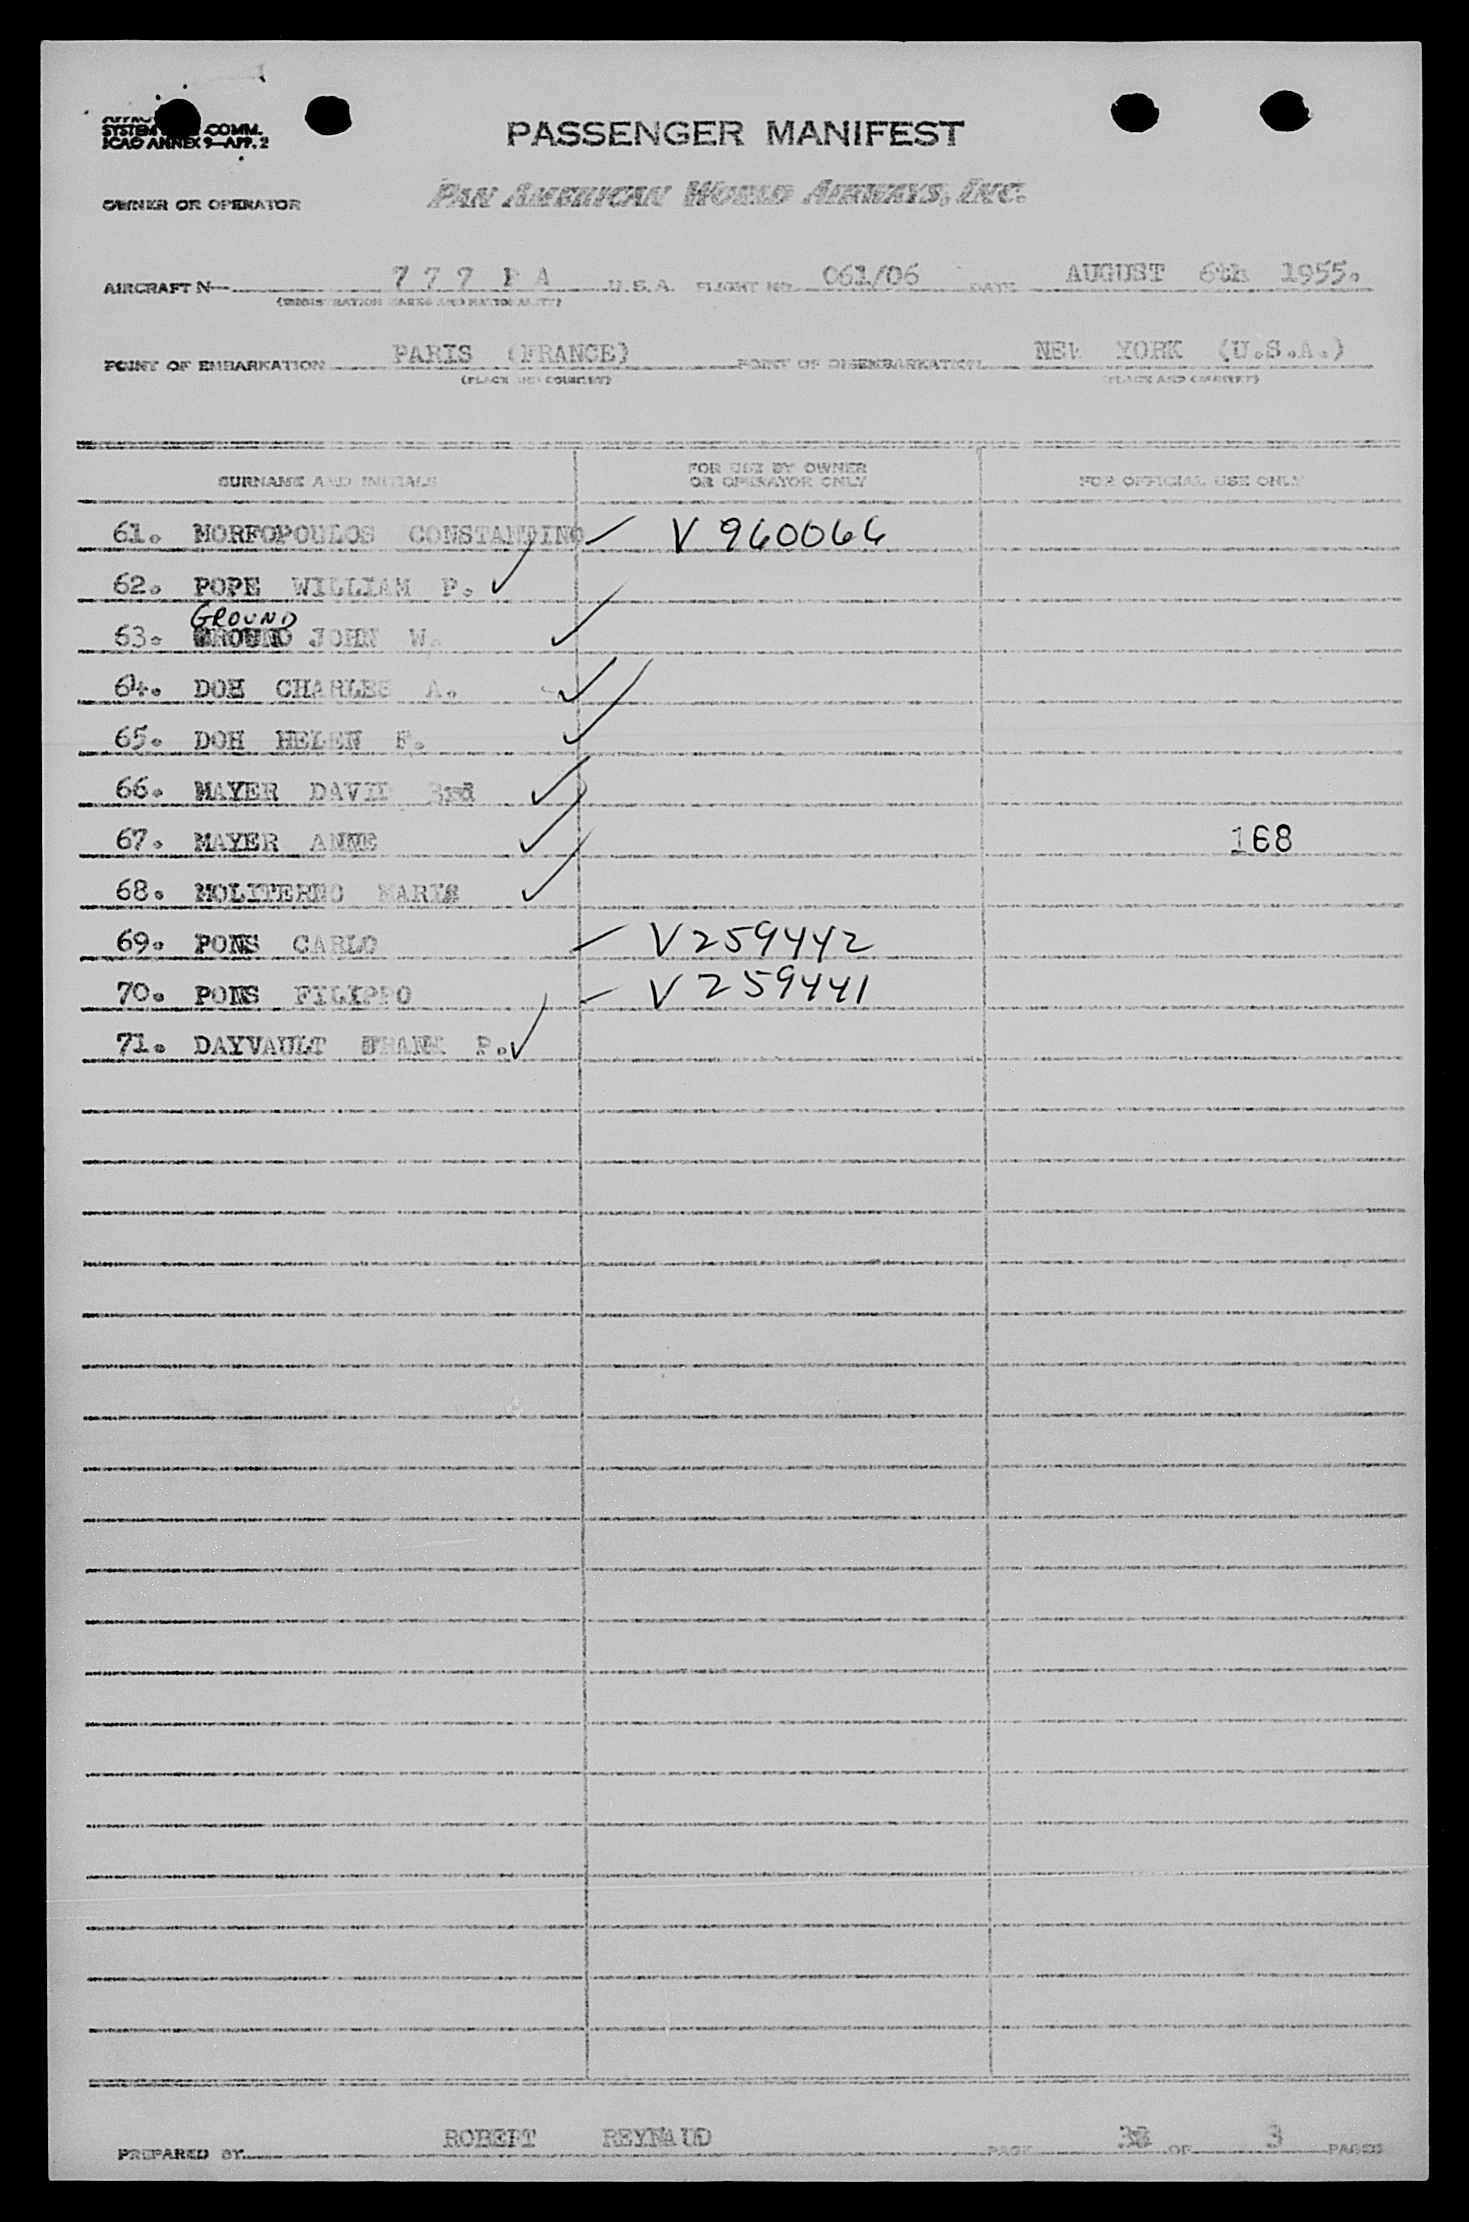 SYSTEM COMM.
ICAO ANNEX 9—APP. 2
PASSENGER MANIFEST
OWNER OR OPERATOR PAN AMERICAN WORLD AIRWAYS, INC.
AIRCRAFT N— 7 7 7 P A U.S.A. FLIGHT NO. 061/06 DATE AUGUST 6th 1955.
(REGISTRATION MARKS AND NATIONALITY)
POINT OF EMBARKATION PARIS (FRANCE) POINT OF DISEMBARKATION NEW YORK (U.S.A.)
(PLACE AND COUNTRY) (PLACE AND COUNTRY)
SURNAME AND INITIALS FOR USE BY OWNER OR OPERATOR ONLY FOR OFFICIAL USE ONLY
61. MORFOPOULOS CONSTANTINO V 960066
62. POPE WILLIAM P.
GROUND
63. GROUND JOHN W.
64. DOH CHARLES A.
65. DOH HELEN F.
66. MAYER DAVID 3rd
67. MAYER ANNE 168
68. MOLITERNO MARIE
69. PONS CARLO V259442
70. PONS FILIPPO V259441
71. DAYVAULT FRANK P.
PREPARED BY ROBERT REYNAUD PAGE 3 OF 3 PAGES